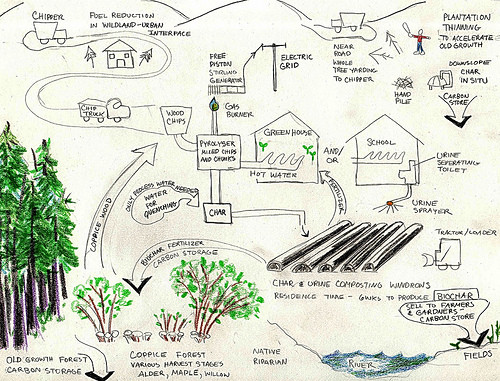 CHIPPER
FUEL REDUCTION
IN WILDLAND-URBAN
INTERFACE
NEAR
ROAD
WHOLE
TREE YARDING
TO CHIPPER
PLANTATION
THINNING
TO ACCELERATE
OLD GROWTH
HAND
PILE
DOWNSLOPE
CHAR
IN SITU
CARBON
STORE
FREE
PISTON
STIRLING
GENERATOR
ELECTRIC
GRID
CHIP
TRUCK
WOOD
CHIPS
GAS
BURNER
PYROLYSER
MIXED CHIPS
AND CHUNKS
GREENHOUSE
HOT WATER
AND/
OR
SCHOOL
URINE
SEPERATING
TOILET
URINE
SPRAYER
COPPICE WOOD
ONLY PROCESS WATER NEEDED
WATER
FOR
QUENCHING
CHAR
FERTILIZER
BIOCHAR FERTILIZER
CARBON STORAGE
TRACTOR/LOADER
CHAR & URINE COMPOSTING WINDROWS
RESIDENCE TIME - 6WKS TO PRODUCE BIOCHAR
SELL TO FARMERS
& GARDENERS -
CARBON STORE
FIELDS
OLD GROWTH FOREST
CARBON STORAGE
COPPICE FOREST
VARIOUS HARVEST STAGES
ALDER, MAPLE, WILLOW
NATIVE
RIPARIAN
RIVER